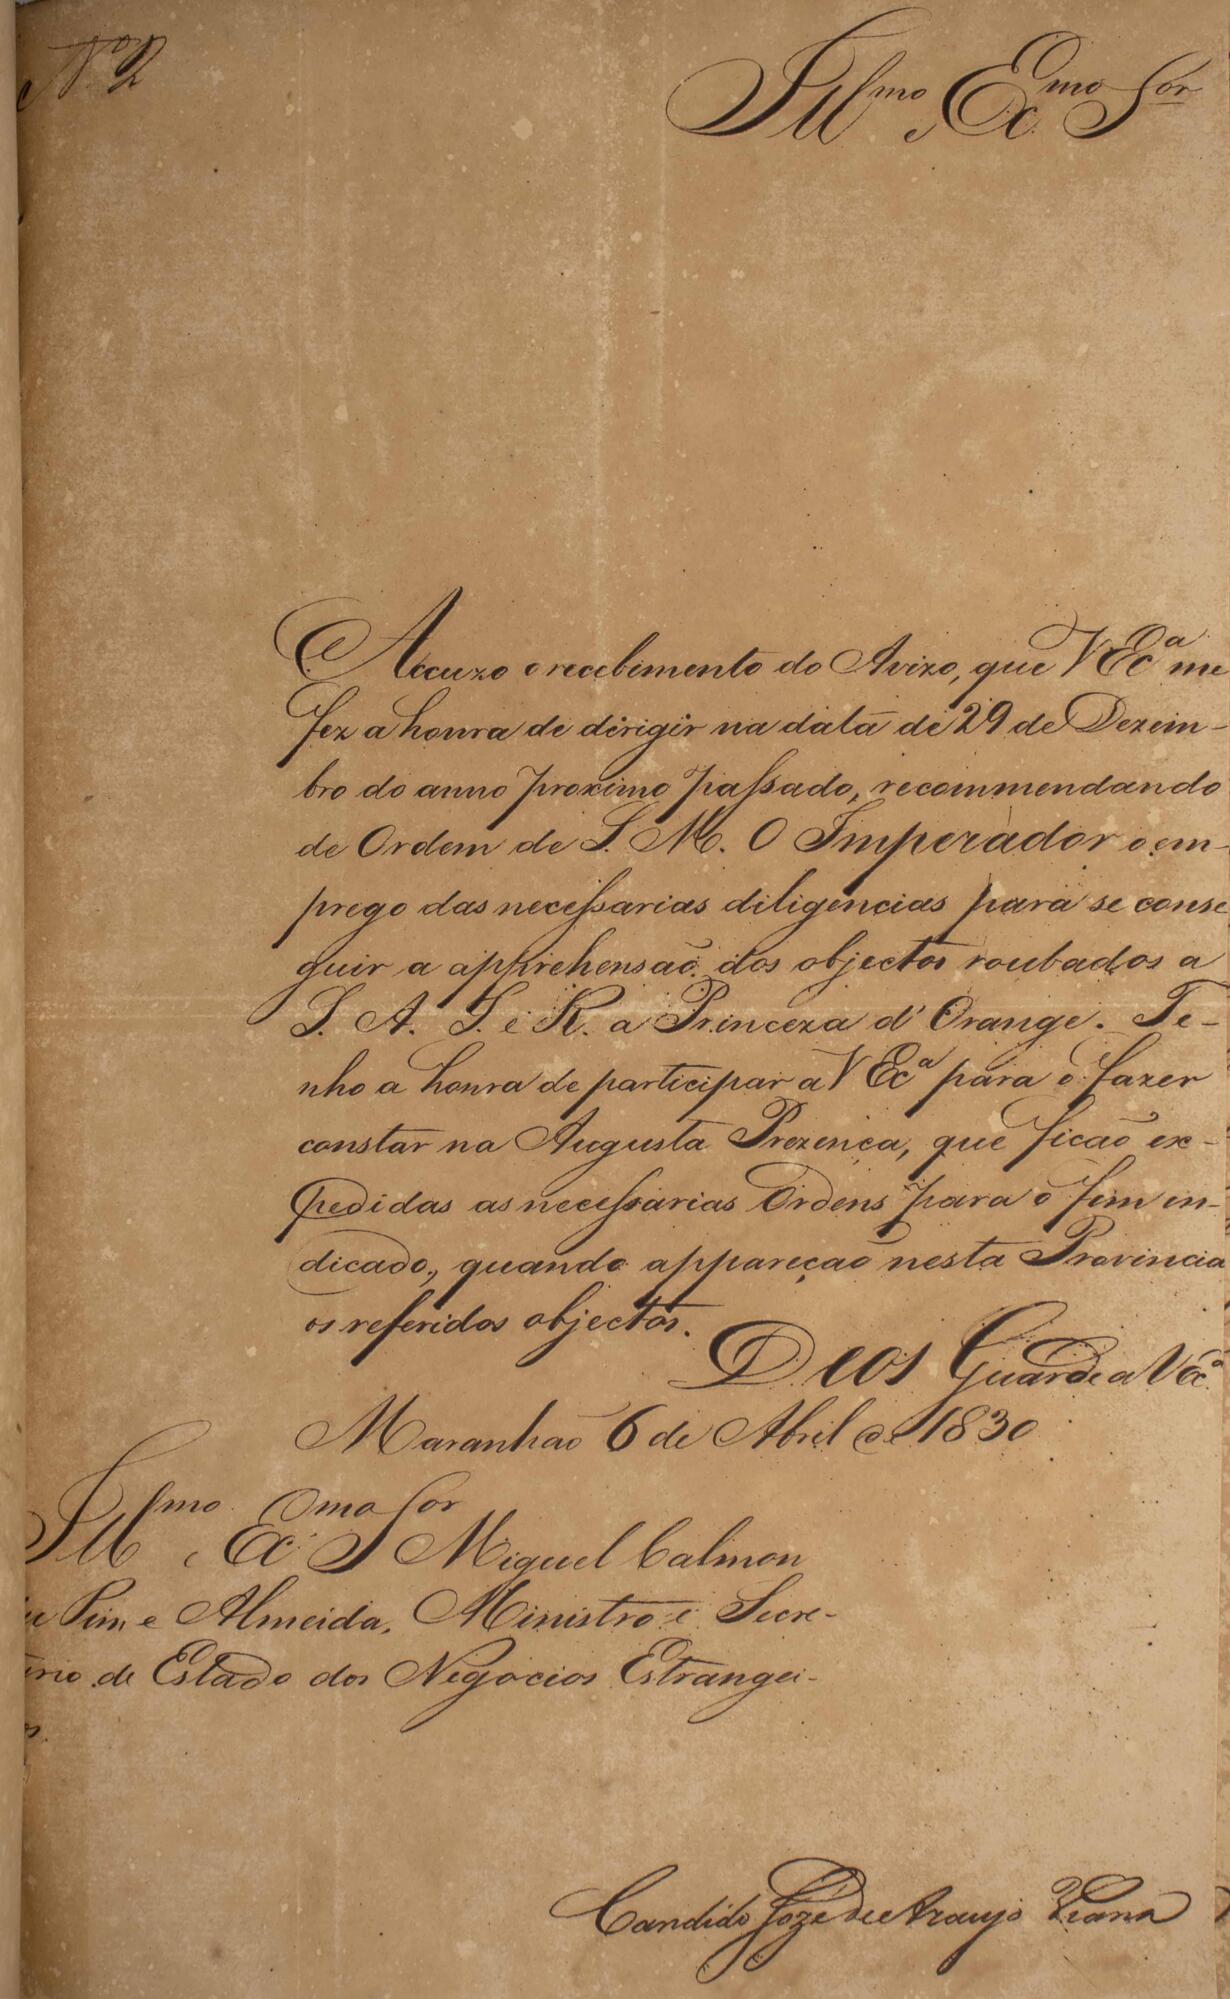 N. 2
Illmo e Exmo Sor
Accuzo o recebimento do Avizo, que V Exa me
fez a honra de dirigir na data de 29 de Dezem-
bro do anno proximo passado, recommendando
de Ordem de S. M. O Imperador o em-
prego das necessarias diligencias para se conse
guir a apprehensaõ dos objectos roubados a
S. A. I. e R. a Princeza d'Orange. Te-
nho a honra de participar a V Exa para o fazer
constar na Augusta Prezença, que ficaõ ex-
pedidas as necessarias Ordens para o fim in-
dicado, quando appareçaõ nesta Provincia
os referidos objectos.
Deos Guarde a V Exa
Maranhaõ 6 de Abril de 1830
Illmo e Exmo Sor Miguel Calmon
du Pin, e Almeida, Ministro e Secre-
tario de Estado dos Negocios Estrangei-
os.
Candido Joze de Araujo Viana